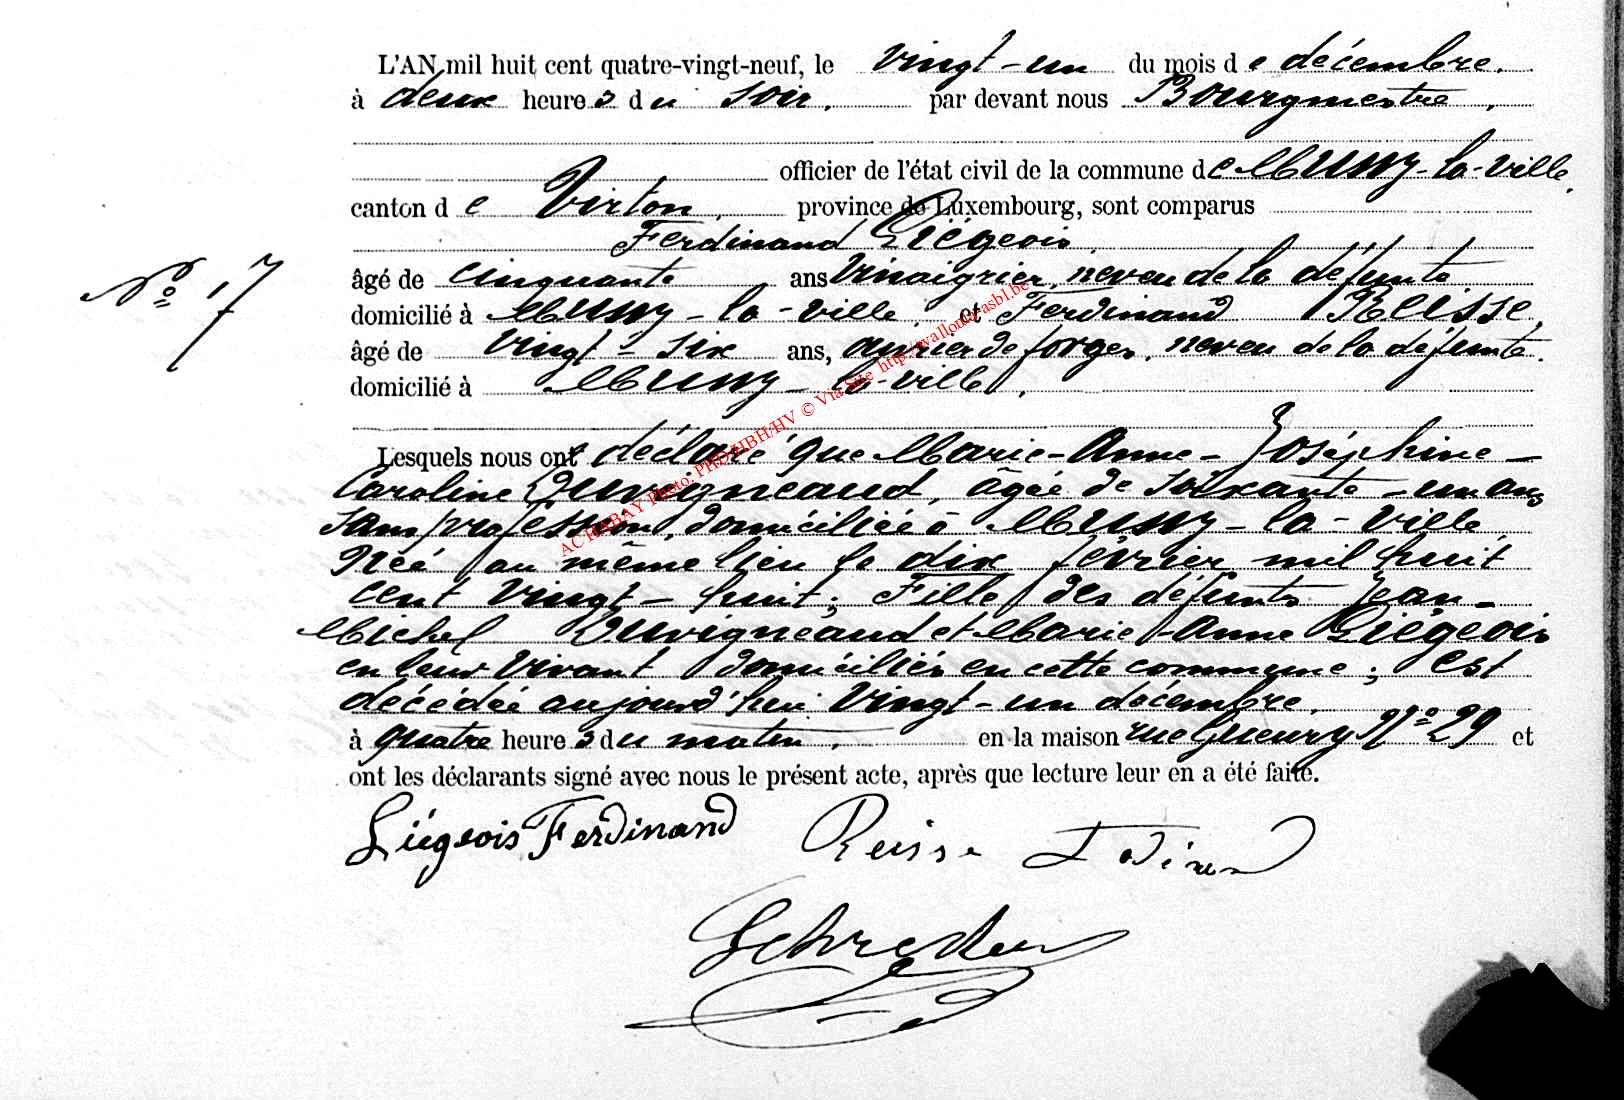 L'AN mil huit cent quatre-vingt-neuf, le vingt-un du mois de décembre.
à deux heures du soir. par devant nous Bourgmestre,
officier de l'état civil de la commune de Mussy-la-ville,
canton de Virton, province de Luxembourg, sont comparus
Ferdinand Liégeois,
N° 17
âgé de cinquante ans vinaigrier, neveu de la défunte
domicilié à Mussy-la-ville, et Ferdinand Reisse,
âgé de vingt-six ans, ouvrier de forges, neveu de la défunte.
domicilié à Mussy-la-ville,
Lesquels nous ont déclaré que Marie-Anne-Joséphine-
Caroline Duvigneaud, âgée de soixante-un ans
sans profession, domiciliée à Mussy-la-ville,
Née au même lieu le dix février mil huit
cent vingt-huit; Fille des défunts Jean-
Michel Duvigneaud et Marie-Anne Liégeois
en leur vivant domiciliés en cette commune; est
décédée aujourd'hui vingt-un décembre,
à quatre heures du matin, en la maison rue N° 29 et
ont les déclarants signé avec nous le présent acte, après que lecture leur en a été faite.
Liégeois Ferdinand Reisse
ACHABAY Photo: PHD/HBH/HV © Via Site http://wallonia-asbl.be